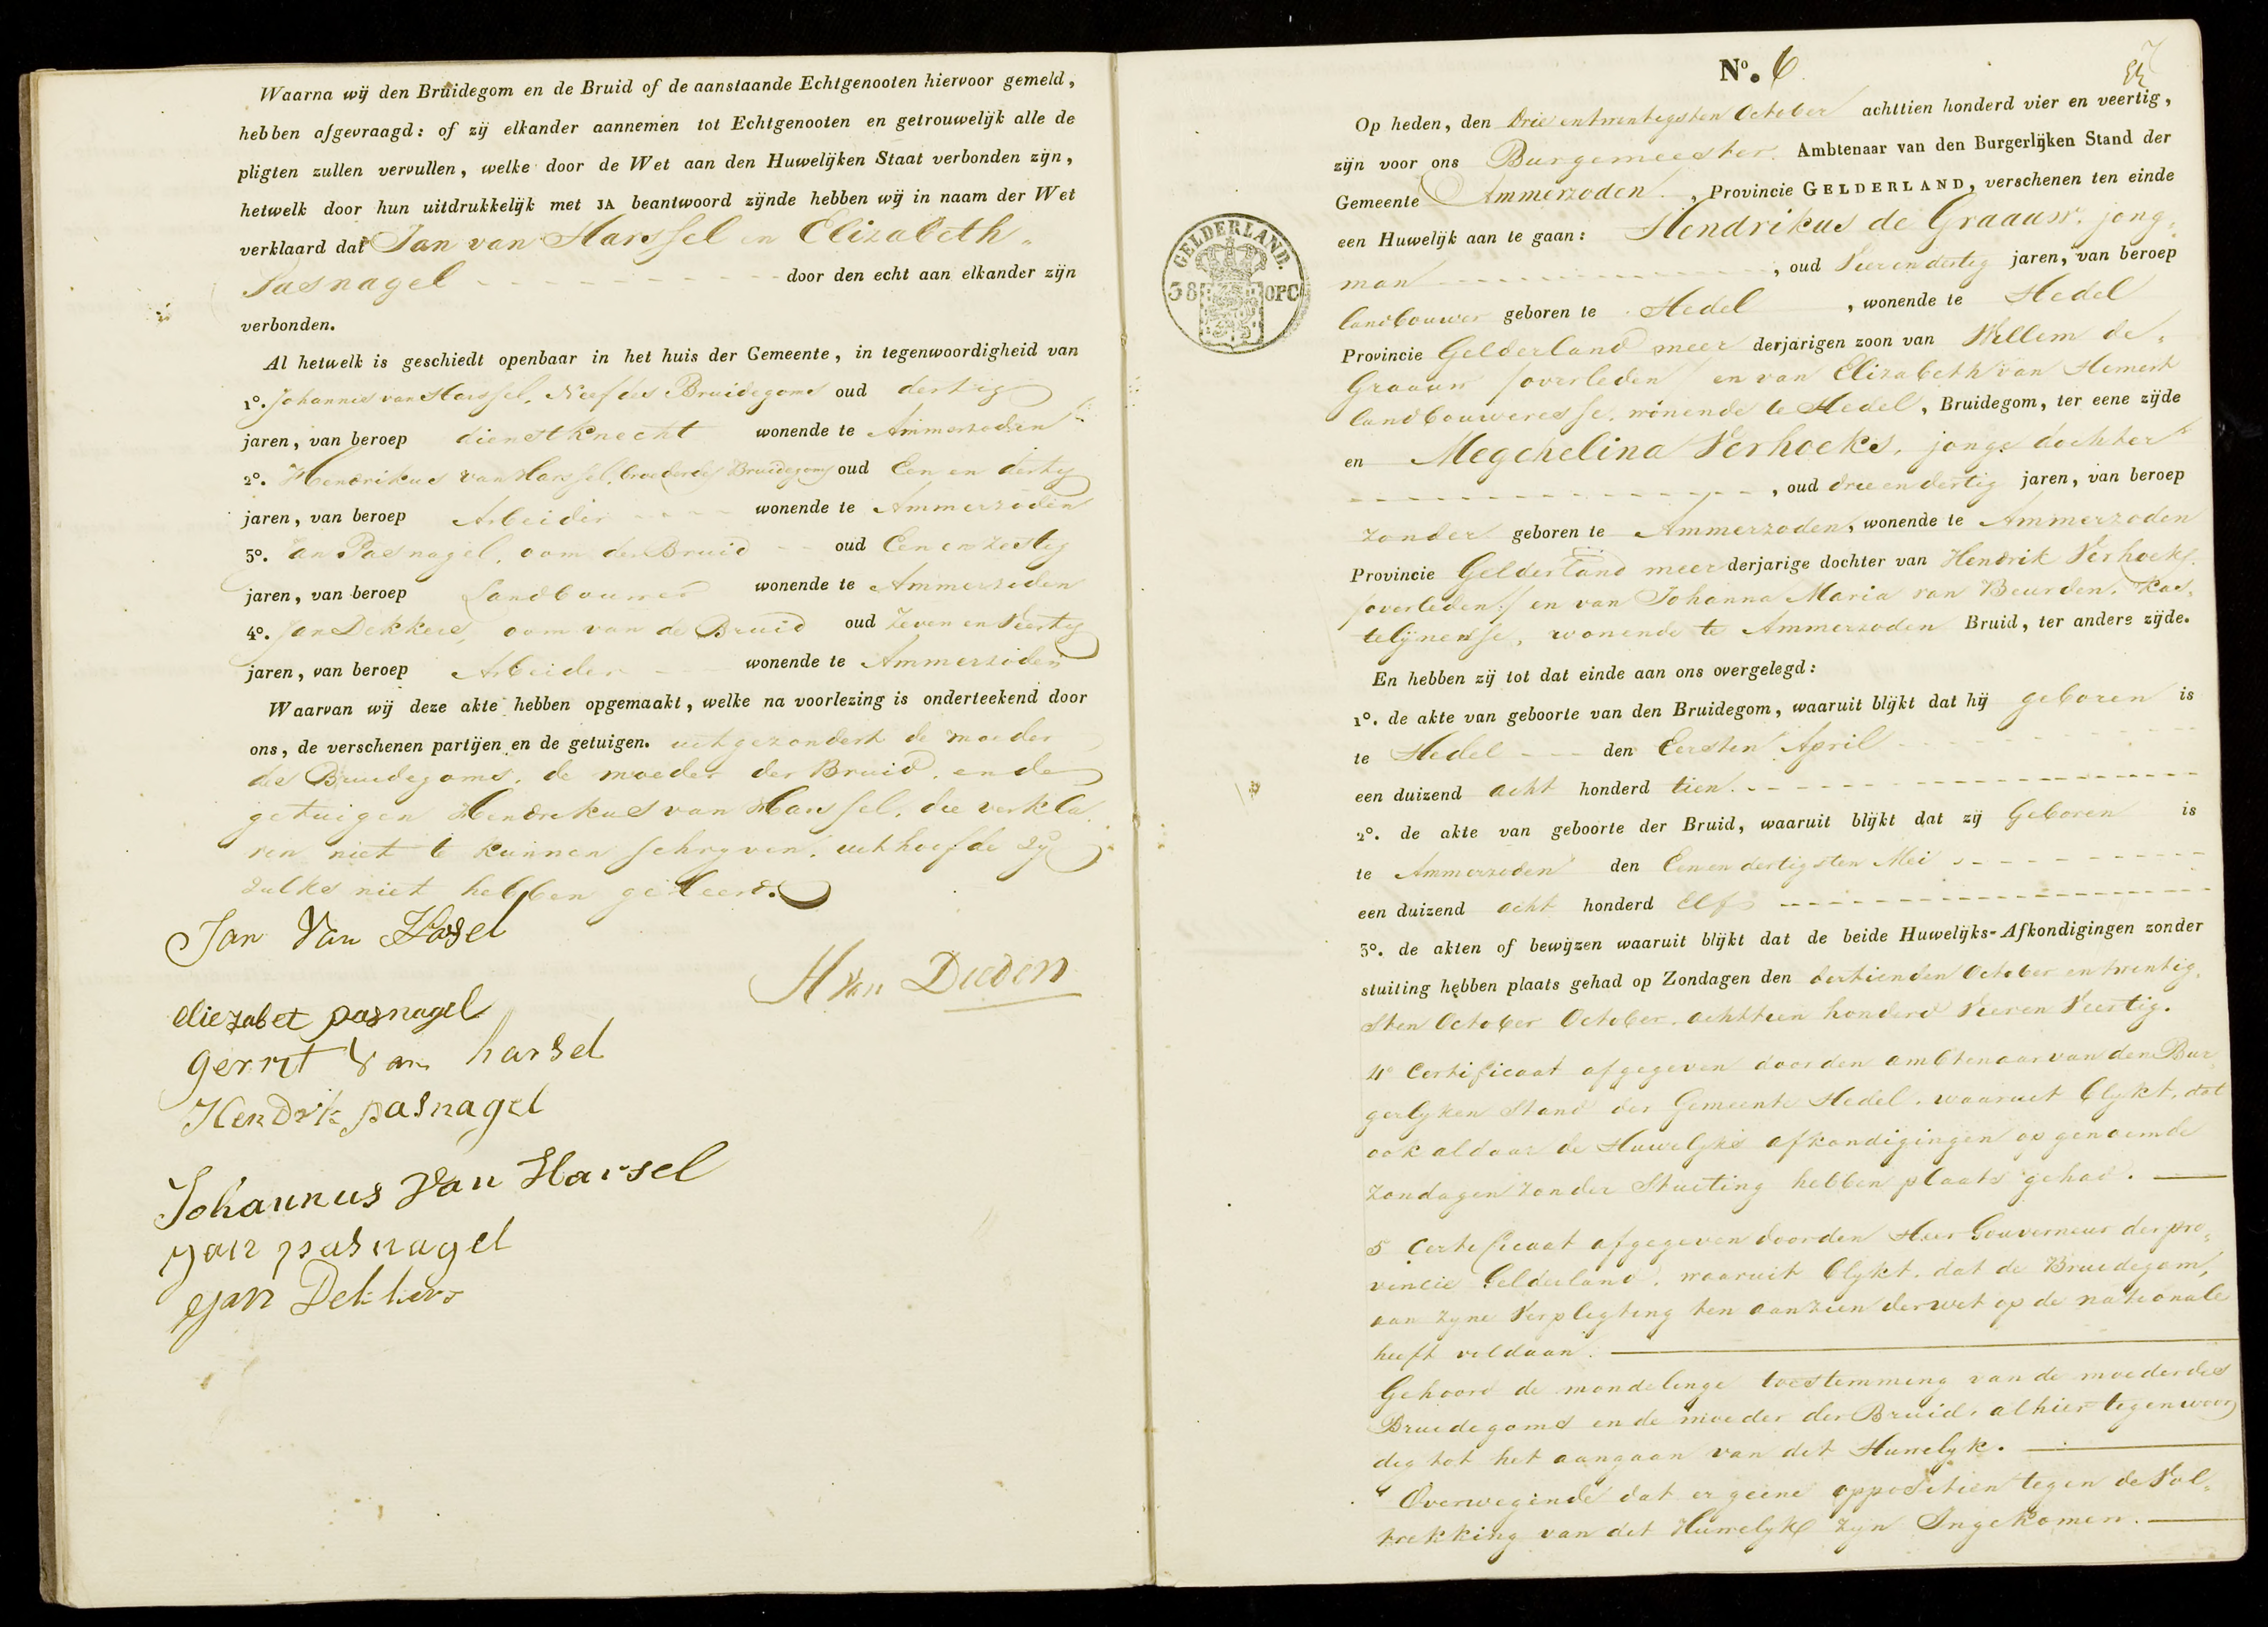 Waarna wij den Bruidegom en de Bruid of de aanstaande Echtgenooten hiervoor gemeld,
hebben afgevraagd: of zij elkander aannemen tot Echtgenooten en getrouwelijk alle de
pligten zullen vervullen, welke door de Wet aan den Huwelijken Staat verbonden zijn,
hetwelk door hun uitdrukkelijk met JA beantwoord zijnde hebben wij in naam der Wet
verklaard dat Jan van Harssel en Elizabeth
Pasnagel door den echt aan elkander zijn
verbonden.
Al hetwelk is geschiedt openbaar in het huis der Gemeente, in tegenwoordigheid van
1º. Johannes van Harssel, Neef des Bruidegoms oud dertig
jaren, van beroep dienstknecht wonende te Ammerzoden
2º. Hendrikus van Harssel, broeder des Bruidegoms oud Een en dertig
jaren, van beroep Arbeider wonende te Ammerzoden
3º. Jan Pasnagel, oom der Bruid oud Een en zestig
jaren, van beroep Landbouwer wonende te Ammerzoden
4º. Jan Dekkers, oom van de Bruid oud Zeven en Veertig
jaren, van beroep Arbeider wonende te Ammerzoden
Waarvan wij deze akte hebben opgemaakt, welke na voorlezing is onderteekend door
ons, de verschenen partijen en de getuigen. uitgezondert de moeder
des Bruidegoms, de moeder der Bruid, en de
getuigen Hendrikus van Harssel, die verkla
ren niet te kunnen schryven, uit hoofde zy
zulks niet hebben geleerd.
Jan Van Hasel
H Van Dieden
eliezabet pasnagel
gerrit van harsel
Hendrik pasnagel
Johannus Van Harsel
jan pasnagel
jan Dekkers
Nº. 6
GELDERLAND.
38 OPC
Op heden, den Drie en twintigsten October achttien honderd vier en veertig,
zijn voor ons Burgemeester Ambtenaar van den Burgerlijken Stand der
Gemeente Ammerzoden, Provincie GELDERLAND, verschenen ten einde
een Huwelijk aan te gaan: Hendrikus de Graauw, jong
man, oud Vier en dertig jaren, van beroep
landbouwer geboren te Hedel, wonende te Hedel
Provincie Gelderland meer derjarigen zoon van Willem de
Graauw /overleden/ en van Elizabeth van Hemert
landbouweresse, wonende te Hedel, Bruidegom, ter eene zijde
en Megchelina Verhoeks, jonge dochter
, oud drie en dertig jaren, van beroep
zonder geboren te Ammerzoden, wonende te Ammerzoden
Provincie Gelderland meer derjarige dochter van Hendrik Verhoeks
/overleden/ en van Johanna Maria van Beurden, kas
telijnersse, wonende te Ammerzoden Bruid, ter andere zijde.
En hebben zij tot dat einde aan ons overgelegd:
1º. de akte van geboorte van den Bruidegom, waaruit blijkt dat hij geboren is
te Hedel den Eersten April
een duizend acht honderd tien.
2º. de akte van geboorte der Bruid, waaruit blijkt dat zij Geboren is
te Ammerzoden den Een en dertigsten Mei
een duizend acht honderd Elf
3º. de akten of bewijzen waaruit blijkt dat de beide Huwelijks-Afkondigingen zonder
stuiting hebben plaats gehad op Zondagen den dertienden October en twintig
sten October October achttien honderd Vier en Veertig.
4º Certificaat afgegeven door den ambtenaar van den Bur
gerlyken Stand der Gemeente Hedel, waaruit blykt, dat
ook aldaar de Huwelyks afkondigingen op genoemde
Zondagen zonder Stuiting hebben plaats gehad.
5 Certificaat afgegeven door den Heer Gouverneur der pro
vincie Gelderland, waaruit blykt, dat de Bruidegom,
aan zyne Verpligting ten aanzien der wet op de nationale
heeft voldaan.
Gehoord de mondelinge toestemming van de moeder des
Bruidegoms en de moeder der Bruid, alhier tegenwoor
dig tot het aangaan van dit Huwelyk.
Overwegende dat er geene oppositien tegen de Vol
trekking van dit Huwelyk zyn Ingekomen.